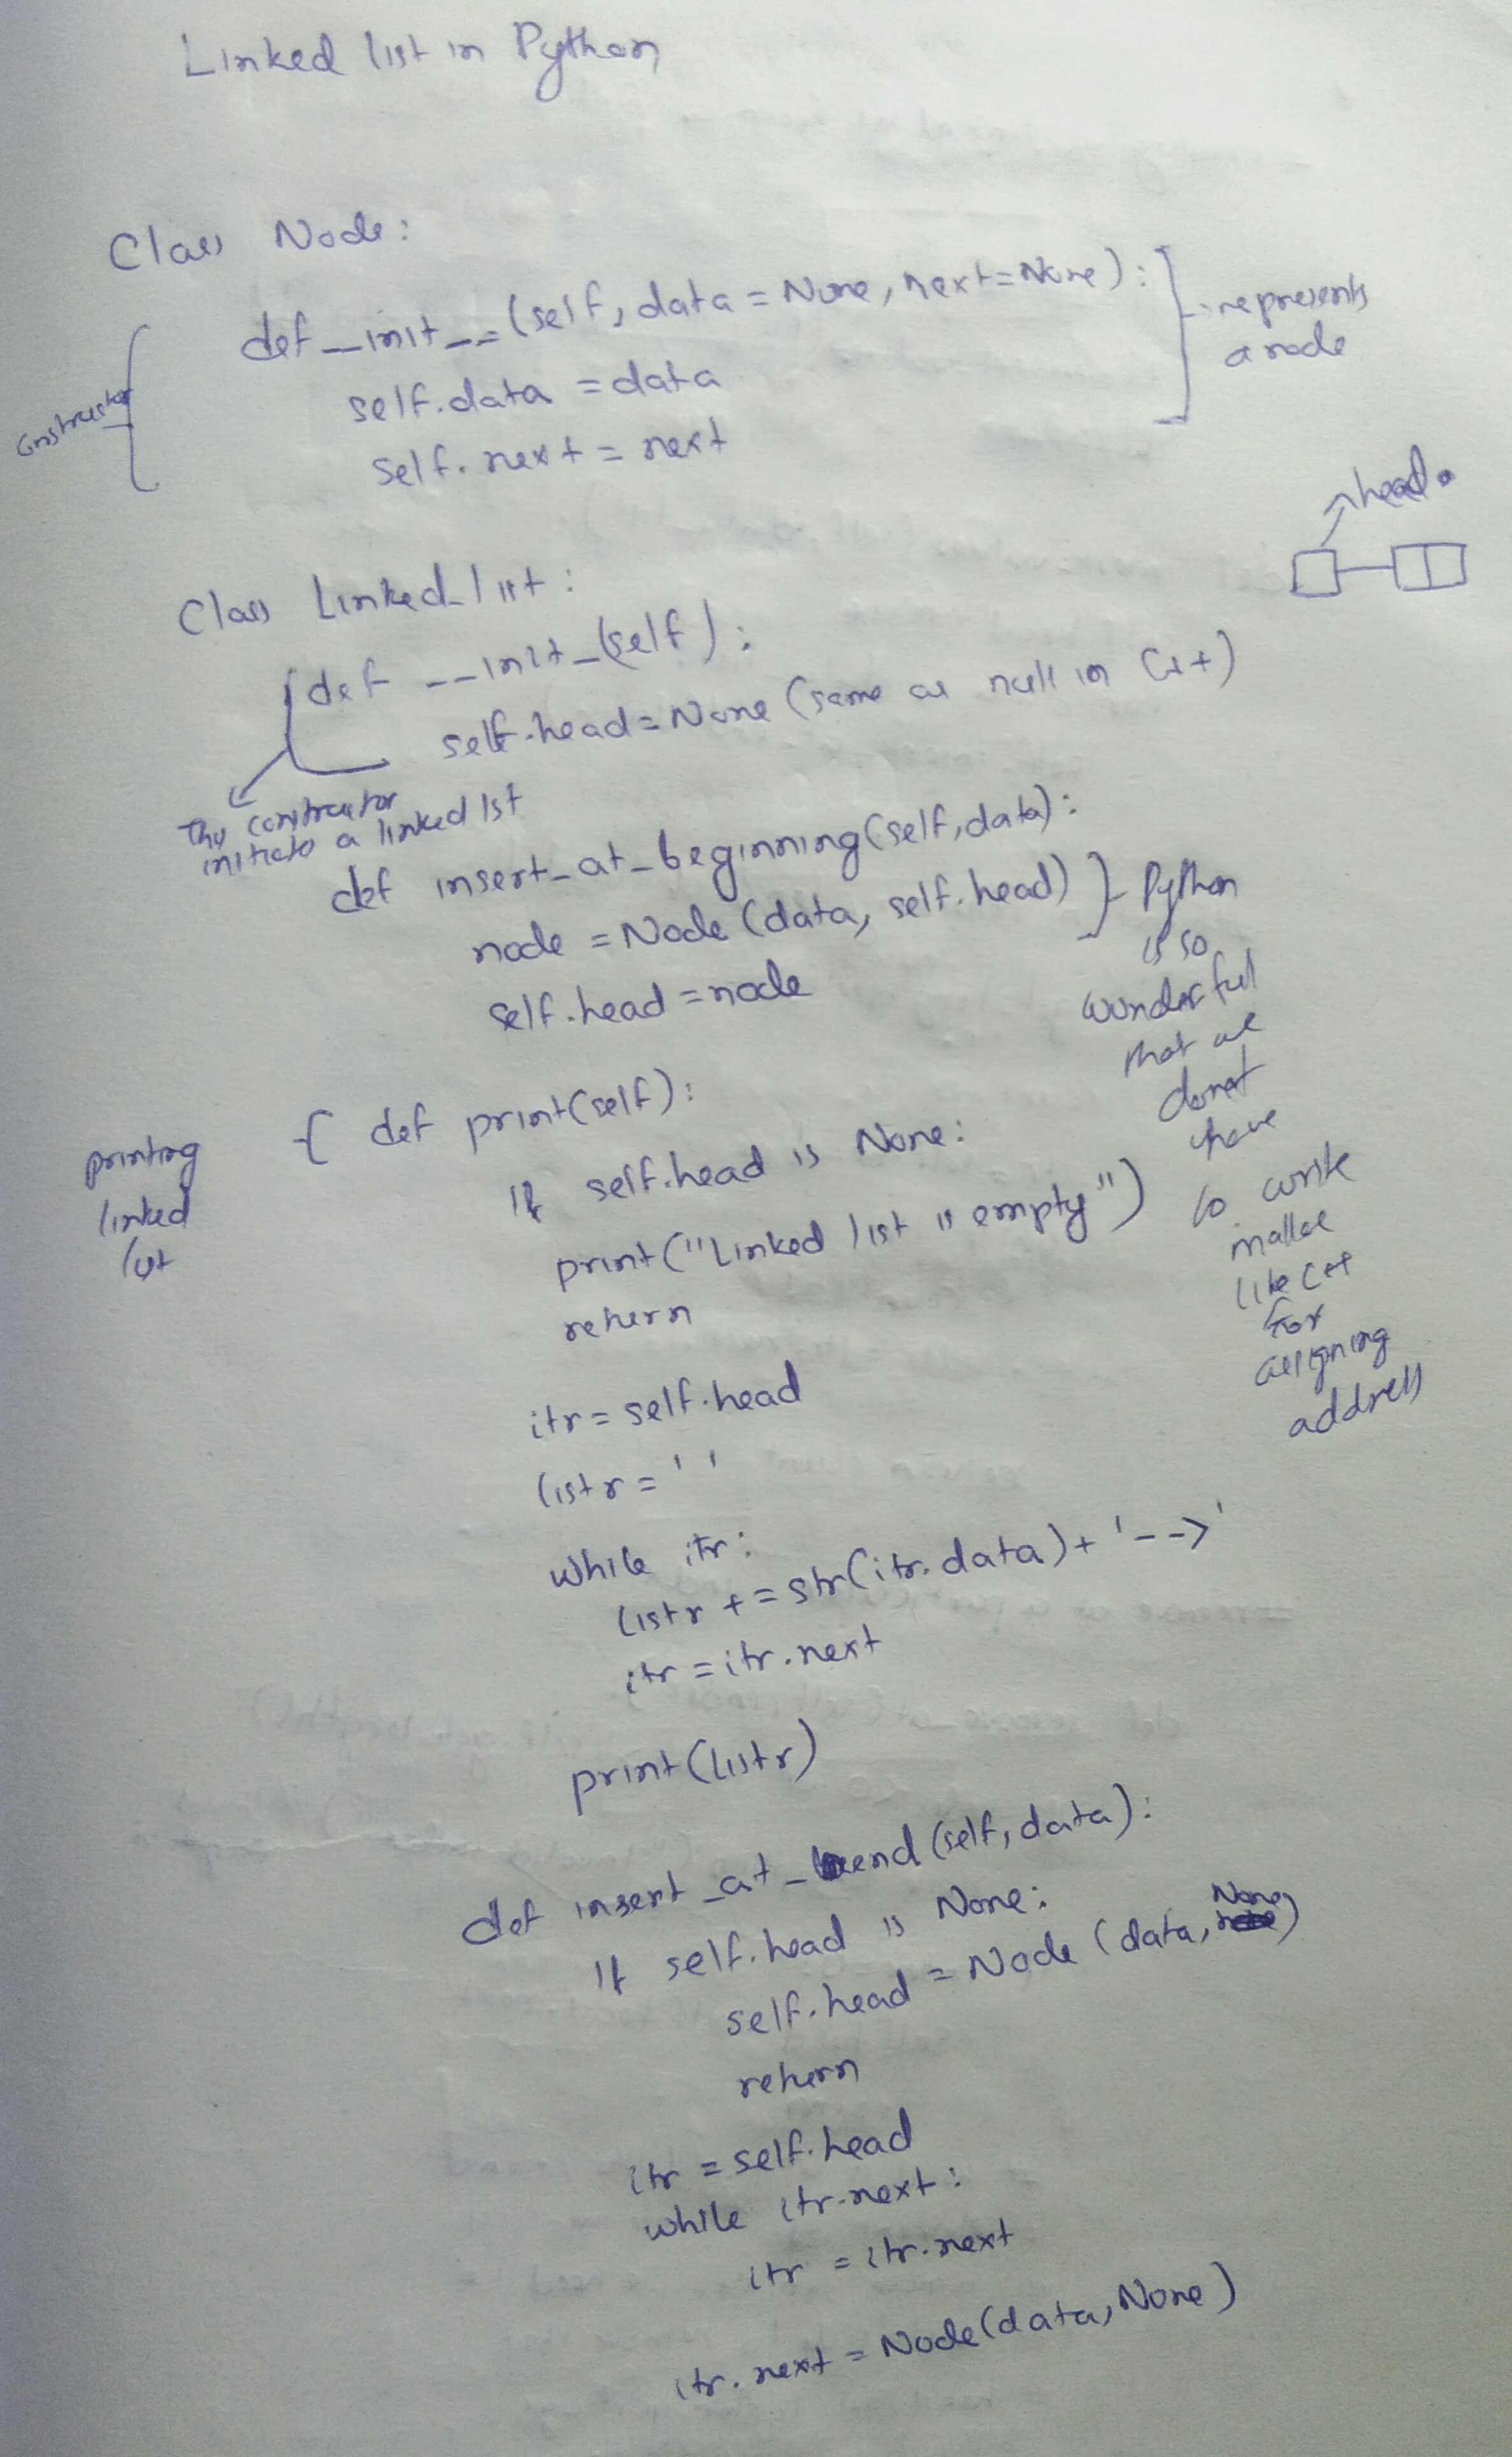 Linked list in Python
Class Node:
def _init__(self, data = None, next=None):
self.data = data
self.next = next
constructor
represents
a node
head
Class Linked_list:
def __init_(self):
self.head=None (same as null in C++)
This constructor
initiats a linked list
def insert_at_beginning(self,data):
node = Node (data, self.head)
self.head = node
Python
is so
wonderfull
that we
donot
have
to write
malloc
like C++
for
assigning
address
printing
linked
list
def print(self):
If self.head is None:
print("Linked list is empty")
return
itr = self.head
listr = ' '
while itr:
listr += str(itr.data)+ '-->'
itr = itr.next
print(listr)
def insert_at_end (self, data):
If self.head is None:
self.head = Node (data, None)
return
itr = self.head
while itr.next:
itr = itr.next
itr.next = Node(data, None)